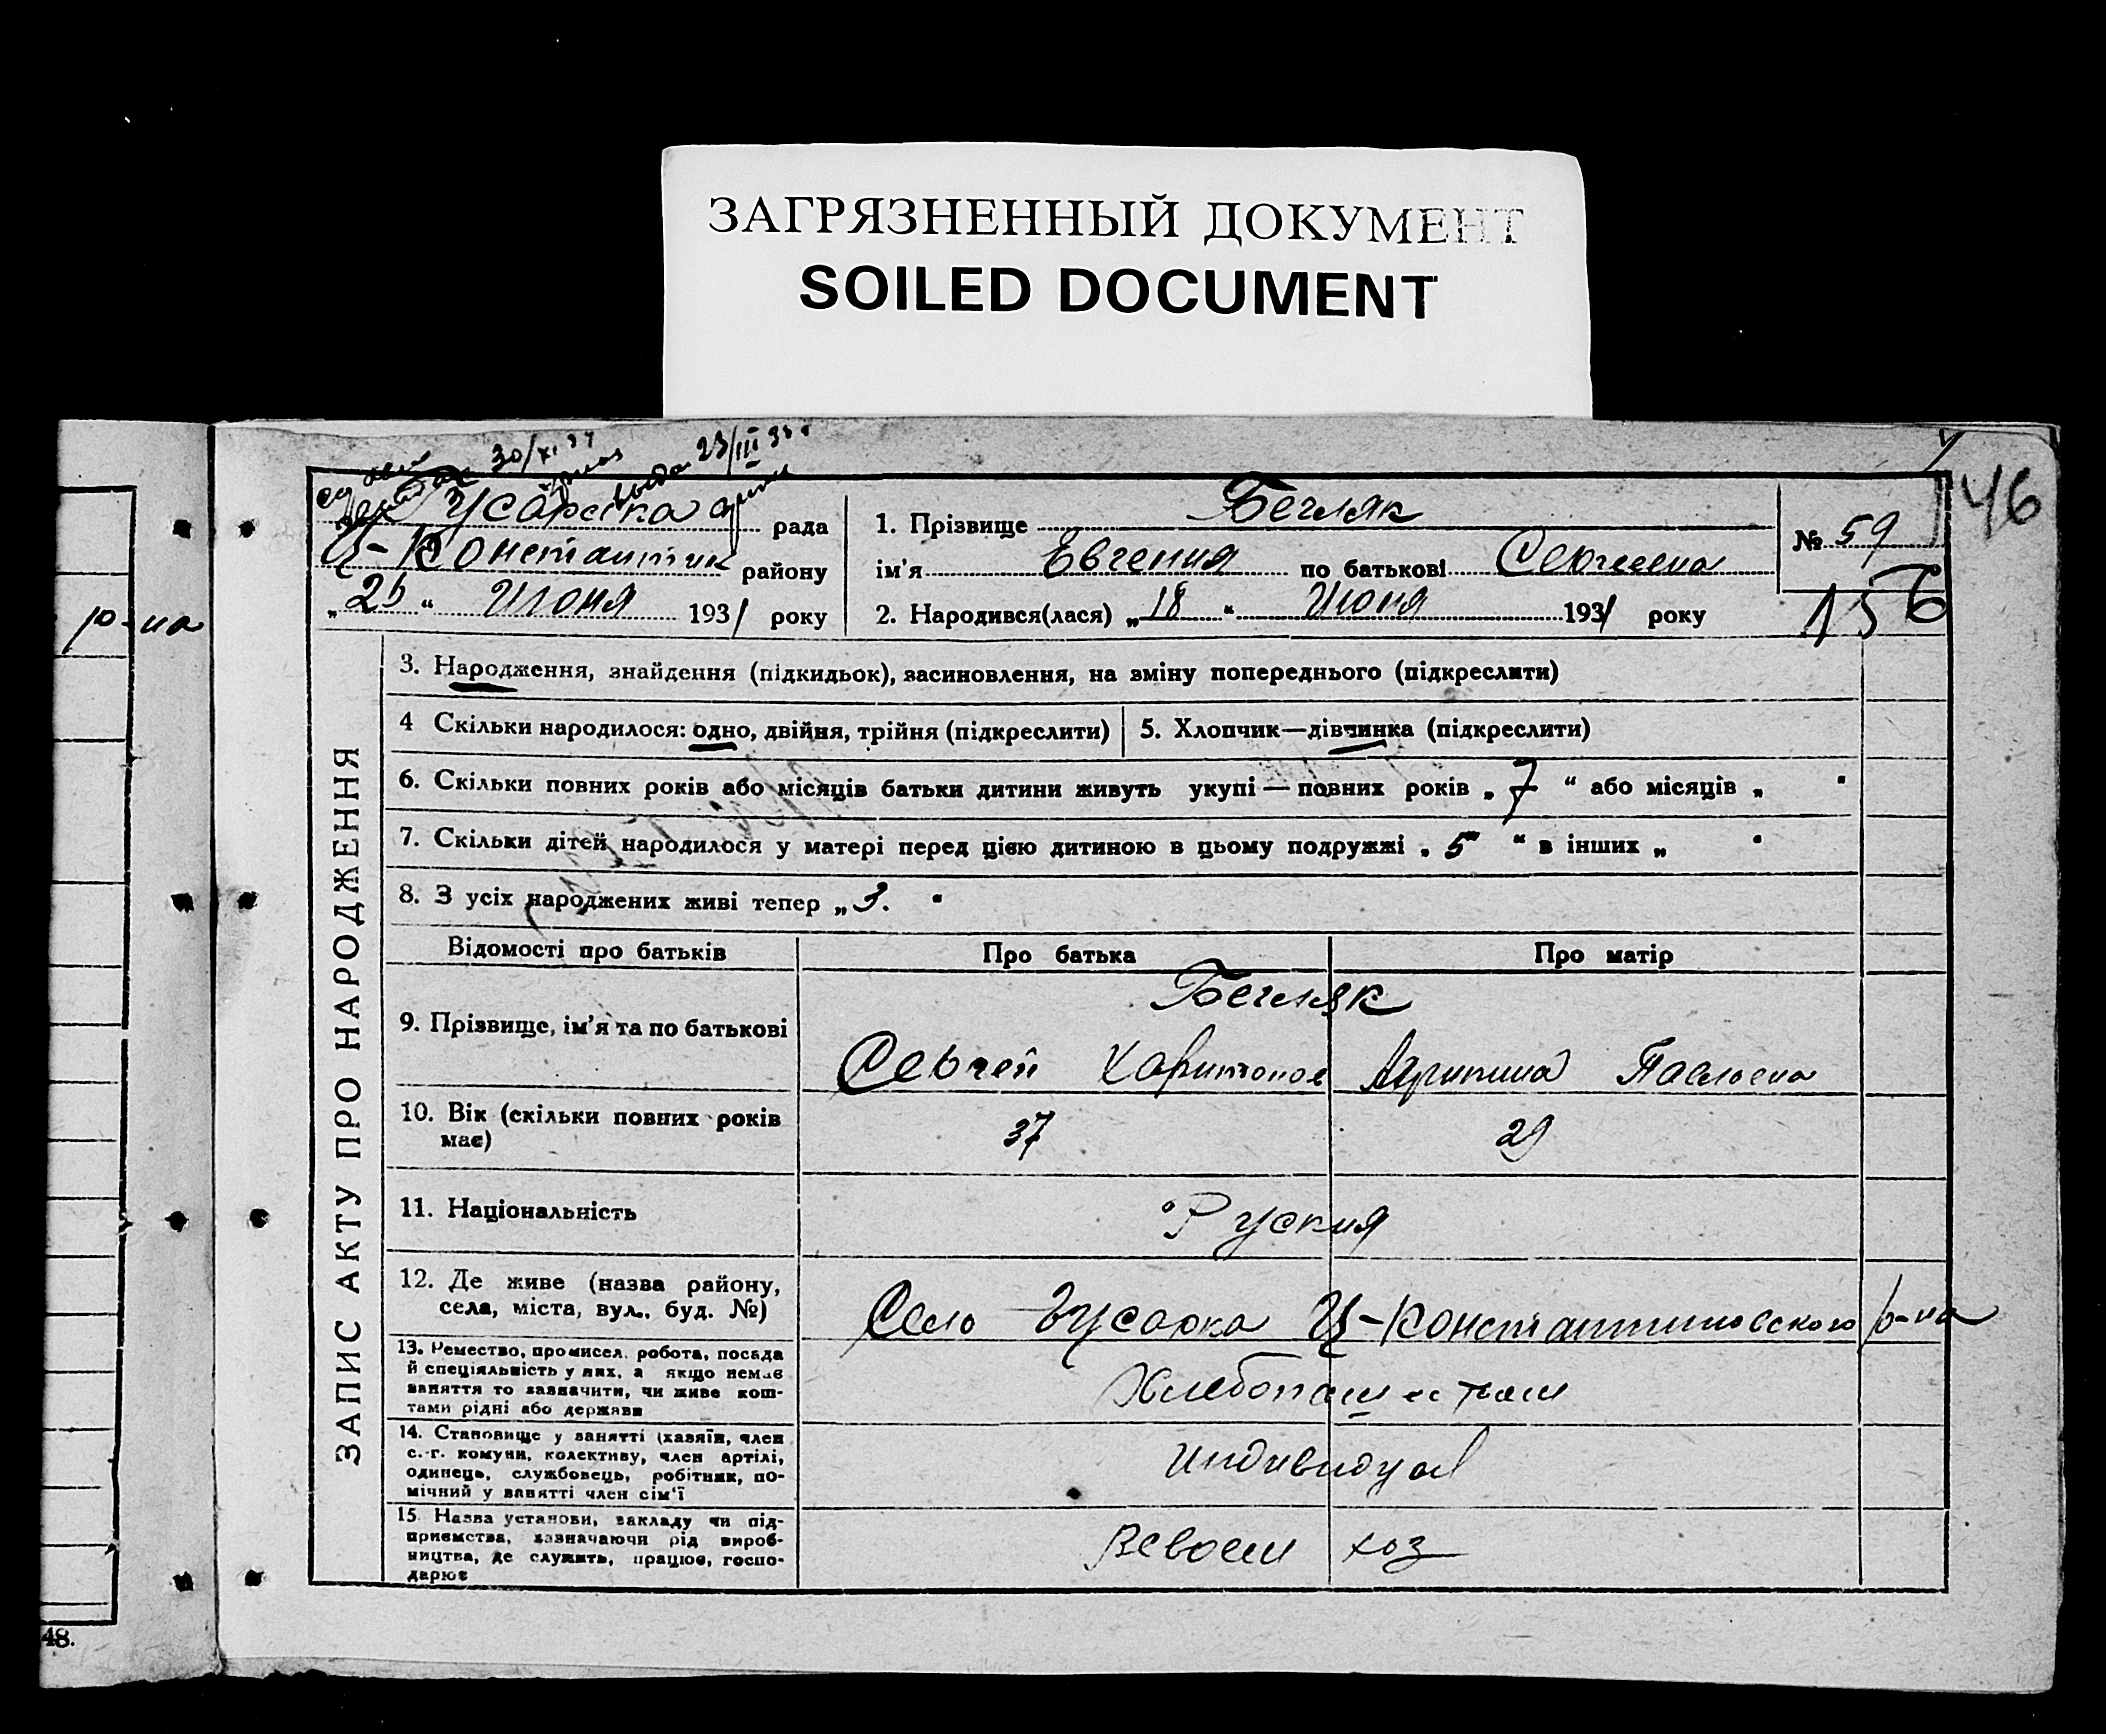 ЗАГРЯЗНЕННЫЙ ДОКУМЕНТ
SOILED DOCUMENT
30/XI 34
23/III 33 г
46
Гусарка рада
Ц-Константин району
„25“ Июня 1931 року
1. Прізвище Бегляк
ім'я Евгения по батькові Сергеевна
2. Народився(лася) „18“ Июня 1931 року
№ 59
156
р-на
ЗАПИС АКТУ ПРО НАРОДЖЕННЯ
3. Народження, знайдення (підкидьок), засиновлення, на зміну попереднього (підкреслити)
4 Скільки народилося: одно, двійня, трійня (підкреслити)
5. Хлопчик—дівчинка (підкреслити)
6. Скільки повних років або місяців батьки дитини живуть укупі — повних років „7“ або місяців „ “
7. Скільки дітей народилося у матері перед цією дитиною в цьому подружжі „5“ в інших „ “
8. З усіх народжених живі тепер „3.“
Відомості про батьків Про батька Про матір
9. Прізвище, ім'я та по батькові
Бегляк
Сергей Харитонов Агрипина Павловна
10. Вік (скільки повних років має) 37 29
11. Національність Руския
12. Де живе (назва району,
села, міста, вул., буд. №)
Село Гусарка Ц-Константиновского р-на
13. Ремество, промисел, робота, посада
й спеціяльність у них, а якщо немає
заняття то зазначити, чи живе кош-
тами рідні або держави
Хлебопашеством
14. Становище у занятті (хазяїн, член
с.-г. комуни, колективу, член артілі,
одинець, службовець, робітник, по-
мічний у занятті член сім'ї
индивидуал
15. Назва установи, закладу чи під-
приємства, зазначаючи рід вироб-
ництва, де служить, працює, госпо-
дарює
В своем хоз
48.